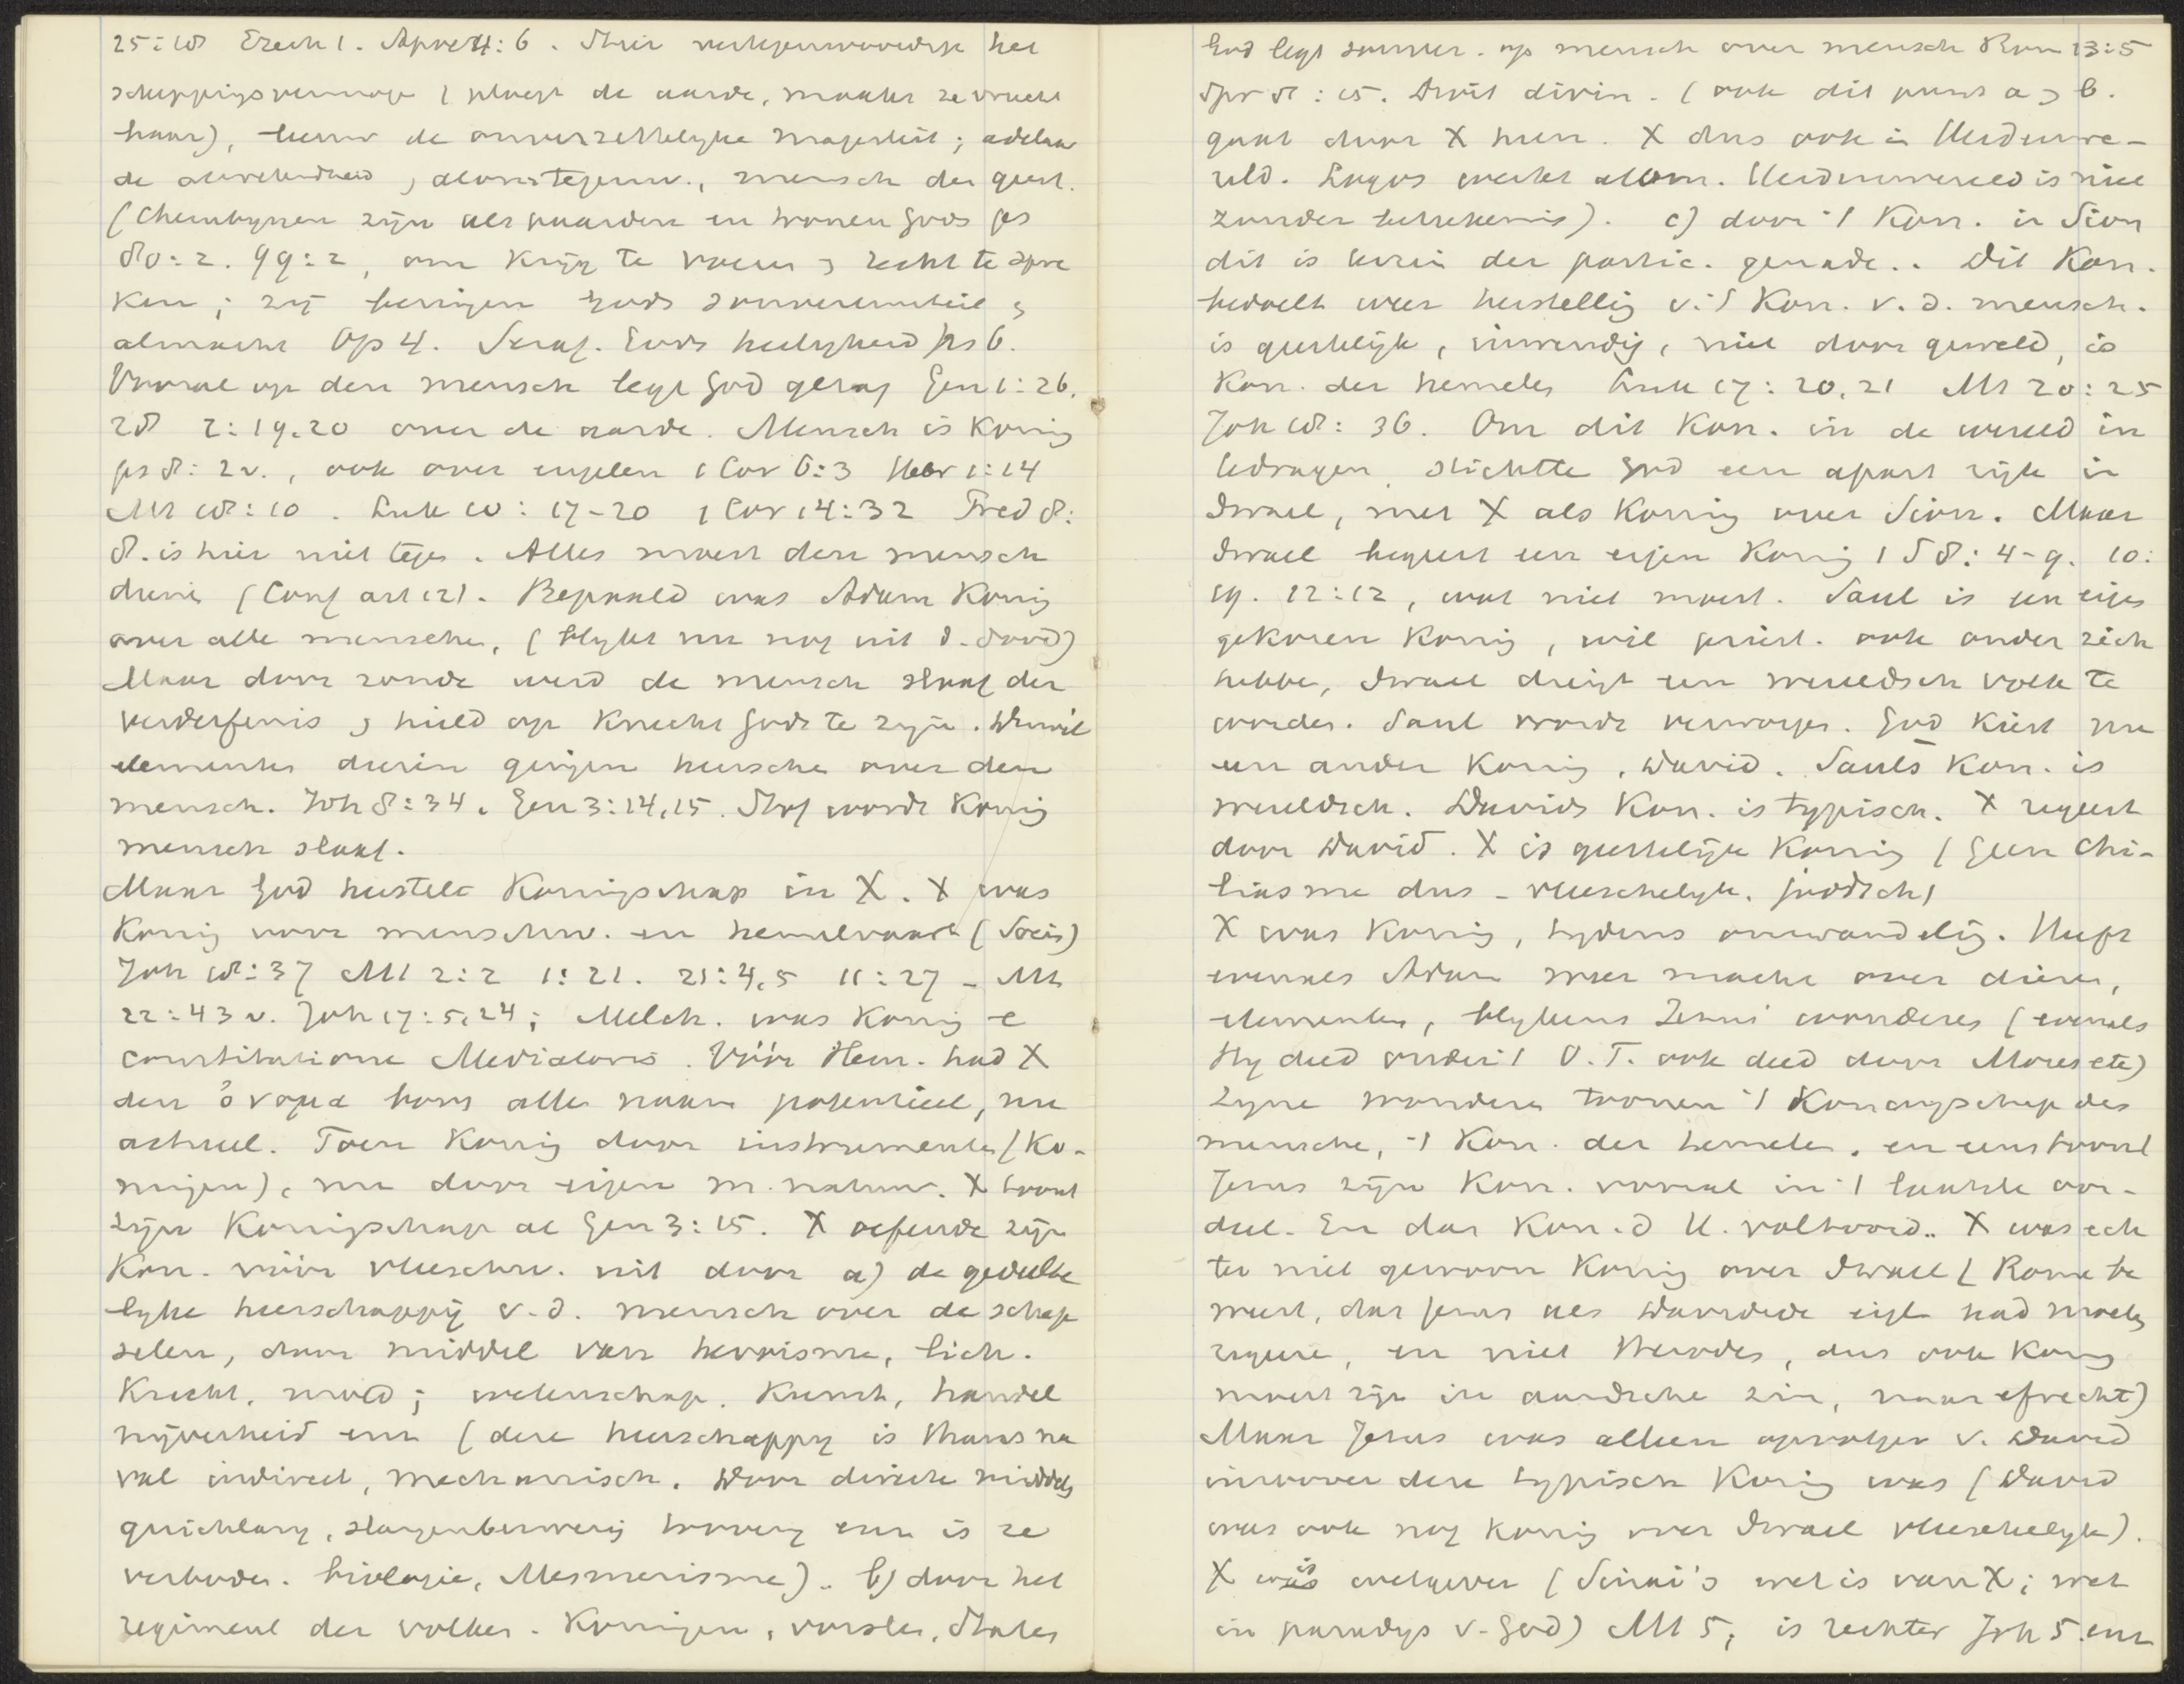 25:18 Ezech 1. Apoc 4:6. Stier vertegenwoordigt het
scheppingsvermoge (ploegt de aarde, maakt ze vrucht
baar), leeuw de onverzettelyke majesteit; adelaar
de alwetendheid, alomtegenw., mensch den geest.
(Cherubynen zijn als paarden en troonen Gods ps
80:2. 99:2, om krijg te voeren ɜ recht te spre
ken; zij brengen Gods souvereiniteit ɜ
almacht Op 4. Seraf. Gods heiligheid Jes 6.
Vooral op den mensch legt God gezag Gen 1:26.
28 2:19.20 over de aarde. Mensch is Koning
ps 8:2v., ook over engelen 1 Cor 6:3 Hebr 1:14
Mt 18:10. Luk 10:17-20 1 Cor 14:32 Pred 8:
8. is hier niet tegen. Alles moest den mensch
dienen (Conf art 12). Bepaald was Adam Koning
over alle menschen, (blykt nu nog uit d. dood)
Maar door zonde werd de mensch slaaf der
verderfenis ɜ hield op Knecht Gods te zyn. Duivel
elementen dieren gingen heerschen over den
mensch. Joh 8:34. Gen 3:14,15. Stof wordt Koning
mensch slaaf.
Maar God herstelt Koningschap in X. X was
Koning voor menschw. en hemelvaart (Socin)
Joh 18:37 Mt 2:2 1:21. 21:4,5 11:27 - Mt
22:43 v. Joh 17:5,24; Melch. was Koning e
constitutione Mediatoris. Vóór Hem. had X
den ὄνομα boven alle naam potentieel, nu
actueel. Toen Koning door instrumenten (Ko-
ningen), nu door eigen m. natuur. X toont
zijn Koningschap al Gen 3:15. X oefende zijn
Kon. vóór vleeschw. uit door a) de gedeelte
lyke heerschappij v.d. mensch over de schep
selen, door middel van heroisme, lich.
Kracht, moed; wetenschap, Kunst, handel
nijverheid enz (deze heerschappy is thans na
val indirect, mechanisch. Door directe middels
gezichtany, slangenbezwering toovery enz is ze
verboden. biologie, Mesmerisme). b) door het
regiment der volken. Koningen, vorsten, Staten
God legt souver. op mensch over mensch Rom 13:5
Spr 8:15. Droit divin. (ook dit punt a ɜ b.
gaat door X heen. X dus ook in Heidenwe-
reld. Logos werkt alom. Heidenwereld is niet
zonder beteekenis). c) door 't Kon. in Sion
dit is terrein der partic. genade.. Dit Kon.
bedoelt weer herstelling v. 't Kon. v.d. mensch.
is geestelijk, inwendig, niet door geweld, is
Kon. der hemelen Luk 17:20,21 Mt 20:25
Joh 18:36. Om dit Kon. in de wereld in
te dragen, stichtte God een apart rijk in
Israel, met X als Koning over Sion. Maar
Israel begeert een eigen Koning 1 S 8:4-9. 10:
19. 12:12, wat niet moest. Saul is een eigen
gekozen Koning, wil priest. ook onder zich
hebben, Israel dreigt een wereldsch volk te
worden. Saul wordt verworpen. God kiest nu
een ander Koning, David. Sauls Kon. is
wereldsch. Davids Kon. is typisch. X regeert
door David. X is geestelijk Koning (Geen Chi-
liasme dus - vleeschelyk. joodsch)
X was Koning, tydens omwandeling. Heeft
evenals Adam weer macht over dieren,
elementen, blykens Zijne wonderen (evenals
Hy deed onder 't O.T. ook deed door Mozes etc)
Zyne wonderen toonen 't Koningschap des
menschen, 't Kon. der hemelen. en eens toont
Jezus zijn Kon. vooral in 't laatste oor-
deel. En dan Kon. d H. voltooid.. X was ech
ter niet gewoon Koning over Israel (Rome be
weert, dat Jezus als Davidide eigl had moeten
regeren, en niet Herodes, dus ook Koning
moest zijn in aardsche zin, naar erfrecht)
Maar Jezus was alleen opvolger v. David
inzoover deze typisch Koning was (David
was ook nog Koning over Israel vleeschelyk).
X is wetgever (Sinai's wet is van X; wet
in paradys v. God) Mt 5; is rechter Joh 5 enz